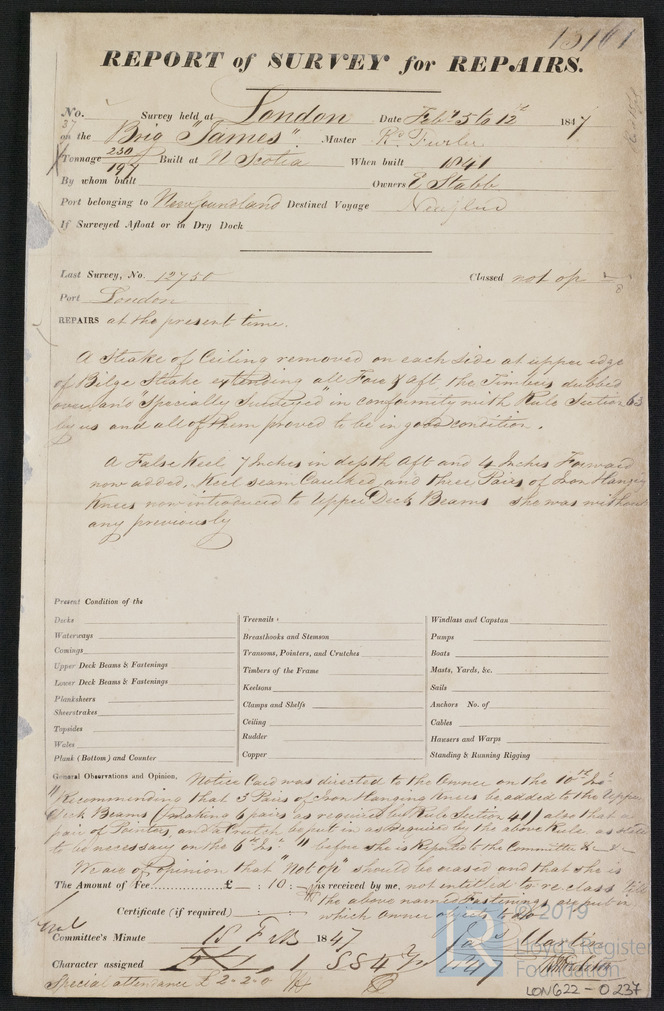 REPORT of SURVEY for REPAIRS.
No. Survey held at London Date Feby 5 to 12th 1847
37
on the Brig "James" Master Rd. Furler
Tonnage 230/197 Built at N Scotia When built 1841
By whom built Owners E Stabb
Port belonging to Newfoundland Destined Voyage
If Surveyed Afloat or in Dry Dock
Last Survey, No. 12750 Classed not op
Port London
REPAIRS at the present time.
A Strake of Ceiling removed on each side at upper edge
of Bilge Strake extending "all" Fore & aft, the Timbers dubbed
over and "Specially Surveyed in conformity with Rule Section 63
by us and all of them proved to be in good condition.
A False Keel 7 Inches in depth Aft and 4 Inches Forward
now added, Keel seam Caulked, and three Pairs of Iron Hanging
Knees now introduced to Upper Deck Beams she was without
any previously
Present Condition of the
Decks Treenails Windlass and Capstan
Waterways Breasthooks and Stemson Pumps
Comings Transoms, Pointers, and Crutches Boats
Upper Deck Beams & Fastenings Timbers of the Frame Masts, Yards, &c.
Lower Deck Beams & Fastenings Keelsons Sails
Planksheers Clamps and Shelfs Anchors No. of
Sheerstrakes Ceiling Cables
Topsides Rudder Hawsers and Warps
Wales Copper Standing & Running Rigging
Plank (Bottom) and Counter
General Observations and Opinion, Notice Card was directed to the Owner on the 10th Inst
"Recommending that 3 Pairs of Iron Hanging Knees be added to the Upper
Deck Beams (making 6 pairs as required by Rule Section 41) also that a
pair of Pointers, and a Crutch be put in as required by the above Rule as stated
to be necessary on the 6th Inst " before she is Reported to the Committee &c &c
We are of opinion that "Not op" should be erased and that she is
The Amount of Fee £ — : 10 : — is received by me, not entitled to re class till
the above named Fastenings are put in
Certificate (if required) which Owner objects to do
Committee's Minute 18 Feb 1847
Jas Martin
Character assigned
Special attendance £ 2-2-0
© 2019
Lloyd's Register
Foundation
LON622-0237